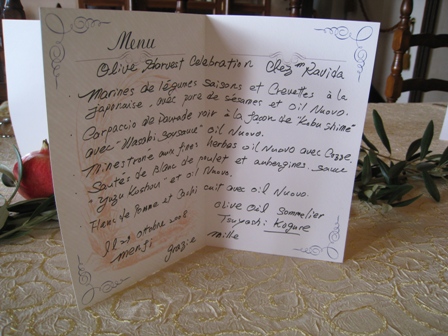 Menu
Olive Harvest Celebration Chez Ravida
Marines de légumes saisons et Crevettes à la
japonaise, avec pure de sesames et oil Nuovo.
Carpaccio de daurade roir à la façon de "Kobu shime"
avec "Wasabi Sousause" oil Nuovo.
Minestrone aux finr herbes oil Nuovo avec Cosse.
Sautés de Blanc de poulet et aubergines sauce
"yuzu Koshou" et oil Nuovo.
Flanc de Pomme et Cachi cuit avec oil Nuovo.
Il 29, ottobre 2008
Olive Oil Sommelier
Tsuyoshi Kogure
merji grazie mille